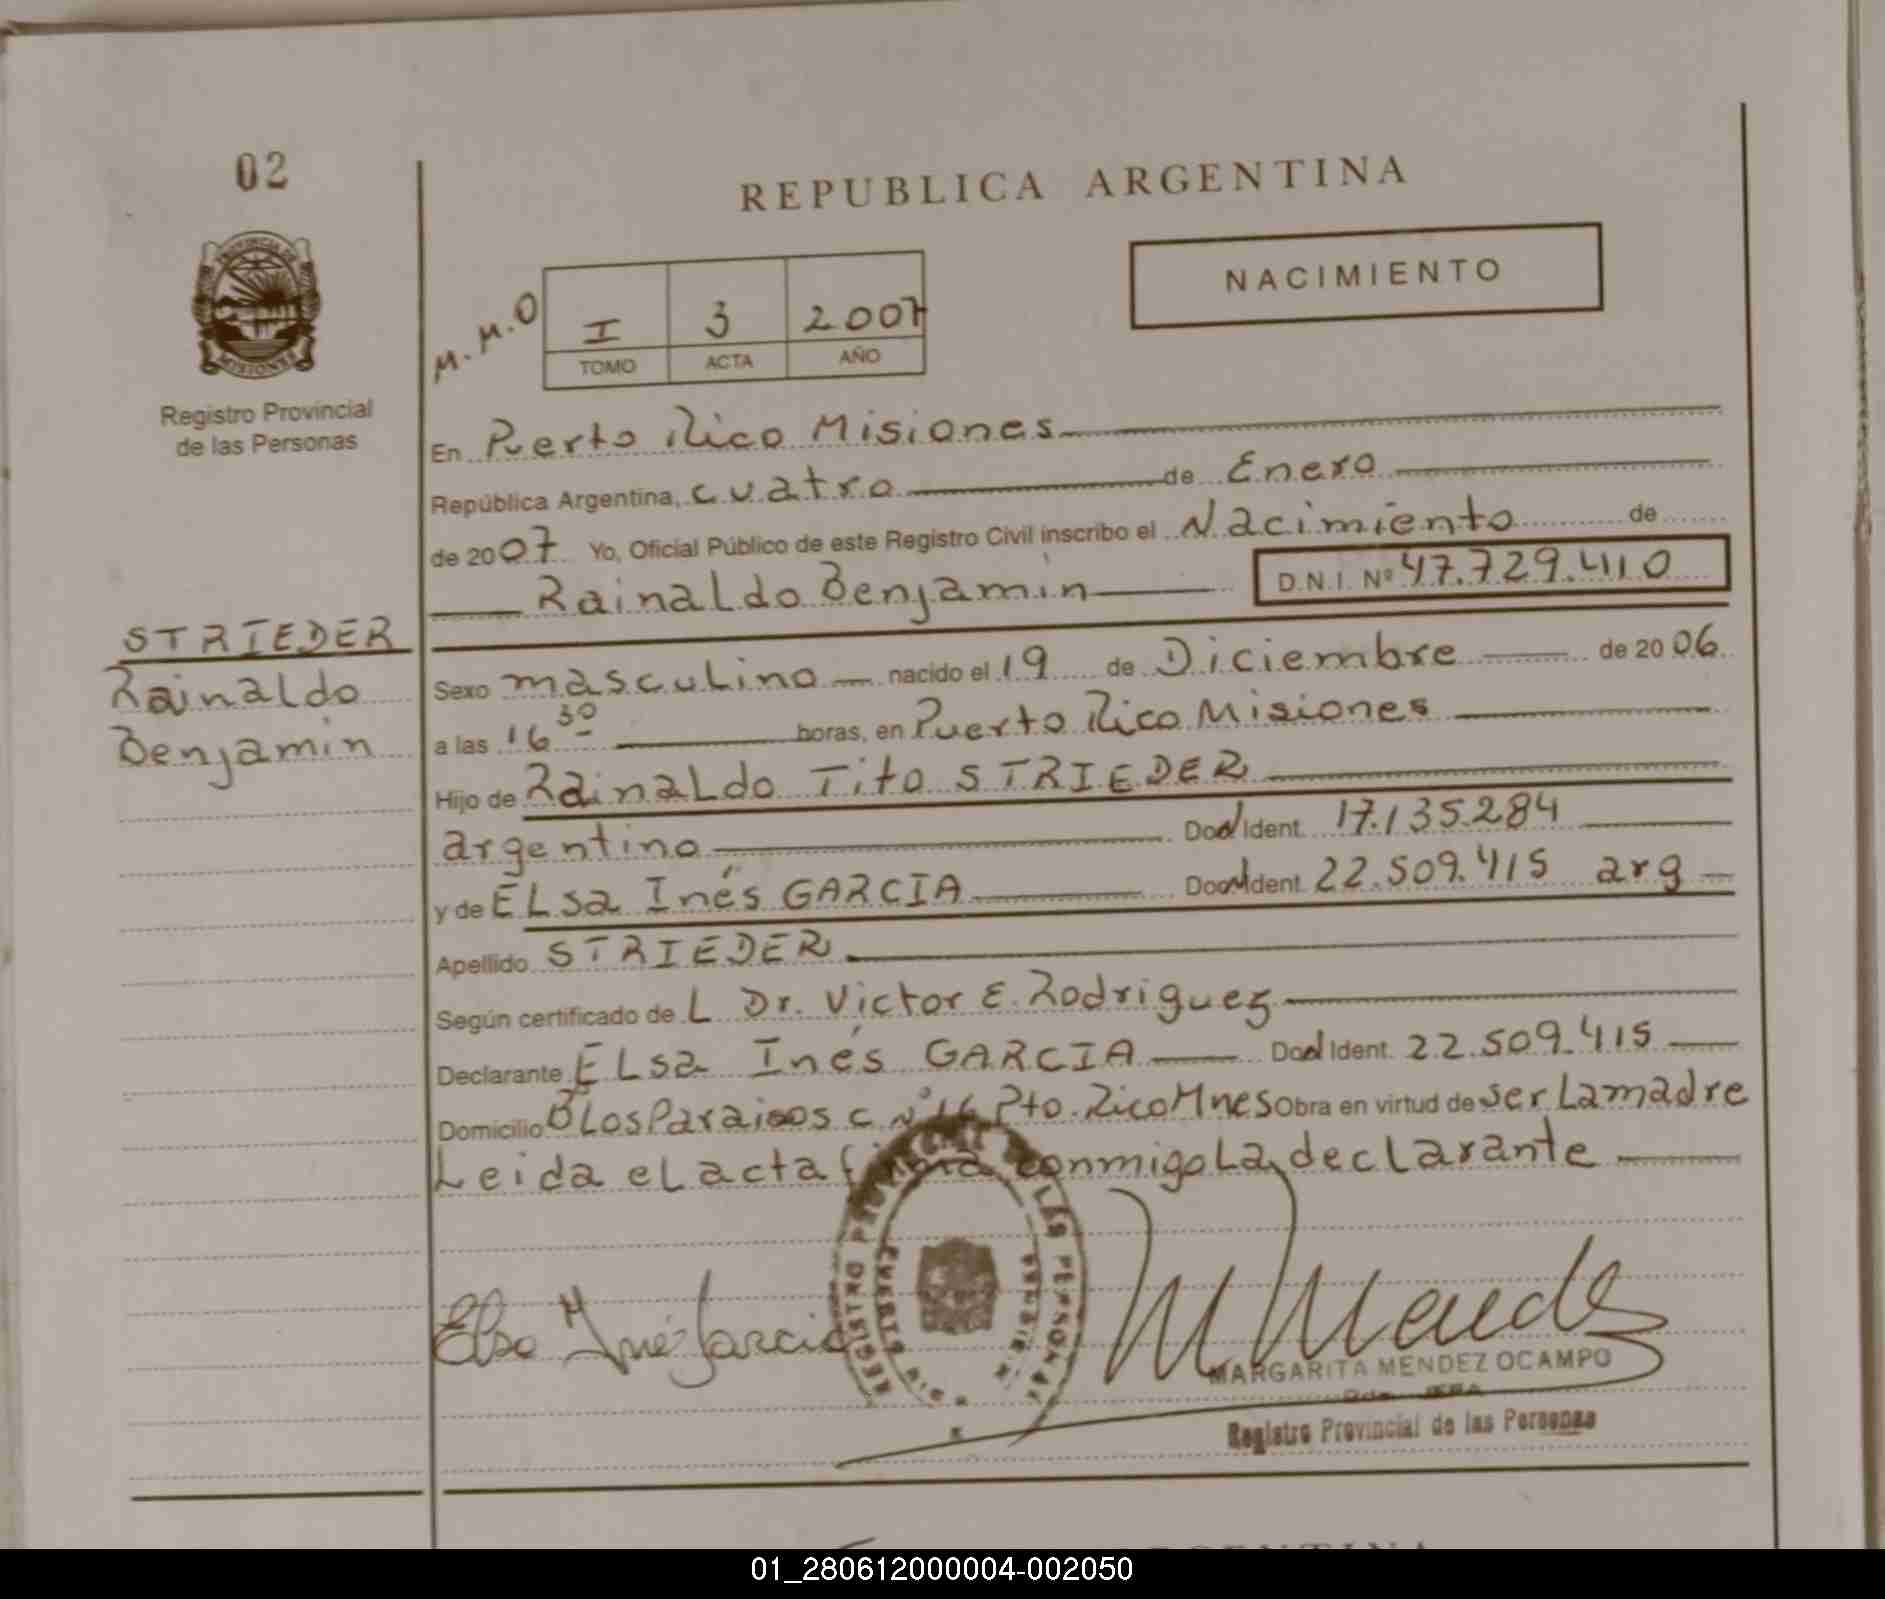 02
REPUBLICA ARGENTINA
PROVINCIA DE
MISIONES
Registro Provincial
de las Personas
NACIMIENTO
M.M.O
I 3 2007
TOMO ACTA AÑO
En Puerto Rico Misiones
República Argentina, cuatro de Enero
de 2007 Yo, Oficial Público de este Registro Civil inscribo el Nacimiento de
Rainaldo Benjamin D.N.I. Nº 47.729.410
STRIEDER
Rainaldo
Benjamin
Sexo masculino nacido el 19 de Diciembre de 2006
a las 16 30 horas, en Puerto Rico Misiones
Hijo de Rainaldo Tito STRIEDER
argentino Doc Ident. 17.135.284
y de ELsa Inés GARCIA Doc Ident. 22.509.415 arg
Apellido STRIEDER
Según certificado de L Dr. Victor E. Rodriguez
Declarante ELsa Inés GARCIA Doc Ident. 22.509.415
Domicilio B Los Paraisos C Nº 16 Pto. Rico Mnes Obra en virtud de ser La madre
Leida el acta firma conmigo La declarante
Elsa Inés Garcia
REGISTRO PROVINCIAL DE LAS PERSONAS
M Mendez
MARGARITA MENDEZ OCAMPO
Registro Provincial de las Personas
01_280612000004-002050